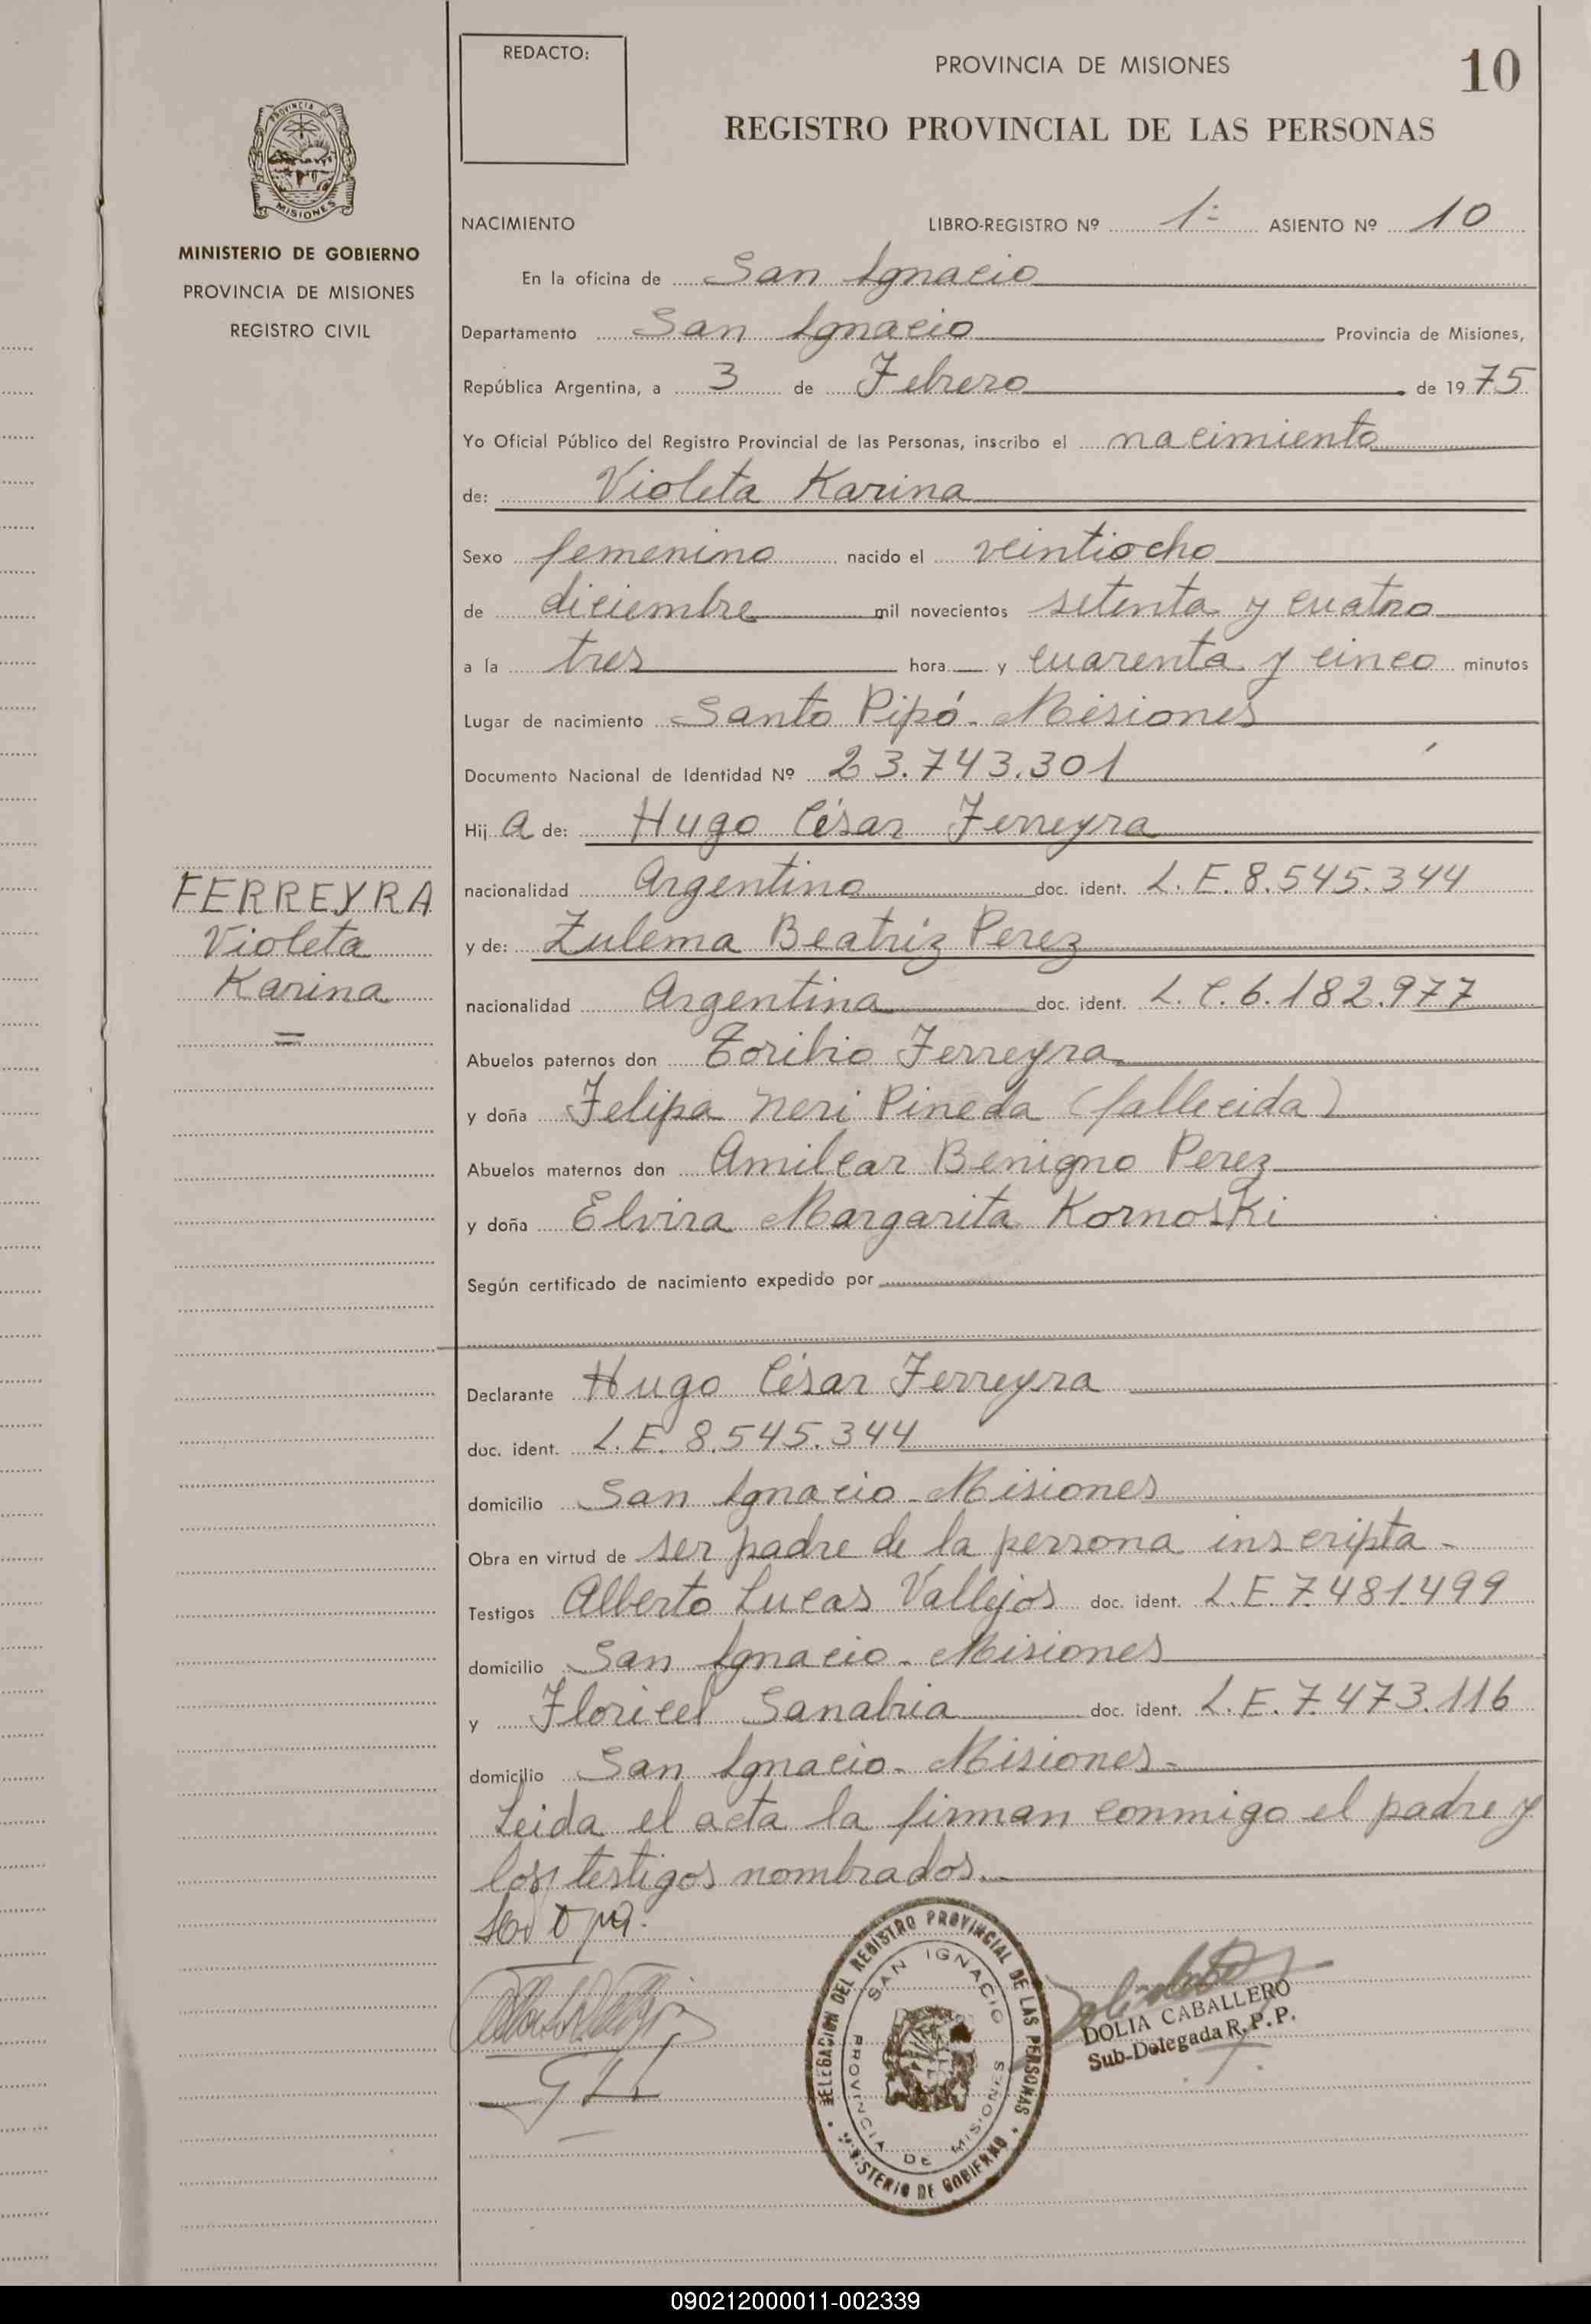 REDACTO:
PROVINCIA DE MISIONES
10
REGISTRO PROVINCIAL DE LAS PERSONAS
PROVINCIA DE
MISIONES
MINISTERIO DE GOBIERNO
PROVINCIA DE MISIONES
REGISTRO CIVIL
NACIMIENTO LIBRO-REGISTRO Nº 1º ASIENTO Nº 10
En la oficina de San Ignacio
Departamento San Ignacio Provincia de Misiones,
República Argentina, a 3 de Febrero de 1975
Yo Oficial Público del Registro Provincial de las Personas, inscribo el nacimiento
de: Violeta Karina
Sexo femenino nacido el veintiocho
de diciembre mil novecientos setenta y cuatro
a la tres hora y cuarenta y cinco minutos
Lugar de nacimiento Santo Pipó - Misiones
Documento Nacional de Identidad Nº 23.743.301
Hija de: Hugo César Ferreyra
FERREYRA
Violeta
Karina
nacionalidad Argentino doc. ident. L. E. 8.545.344
y de: Zulema Beatriz Perez
nacionalidad Argentina doc. ident. L. C. 6.182.977
Abuelos paternos don Toribio Ferreyra
y doña Felipa Neri Pineda (fallecida)
Abuelos maternos don Amilcar Benigno Perez
y doña Elvira Margarita Kornoski
Según certificado de nacimiento expedido por
Declarante Hugo César Ferreyra
doc. ident. L. E. 8.545.344
domicilio San Ignacio - Misiones
Obra en virtud de ser padre de la persona inscripta -
Testigos Alberto Lucas Vallejos doc. ident. L. E. 7.481.499
domicilio San Ignacio - Misiones
y Floricel Sanabria doc. ident. L. E. 7.473.116
domicilio San Ignacio - Misiones -
Leida el acta la firman conmigo el padre y
los testigos nombrados.
DELEGACION DEL REGISTRO PROVINCIAL DE LAS PERSONAS
MINISTERIO DE GOBIERNO
SAN IGNACIO
PROVINCIA DE MISIONES
DOLIA CABALLERO
Sub-Delegada R. P. P.
090212000011-002339